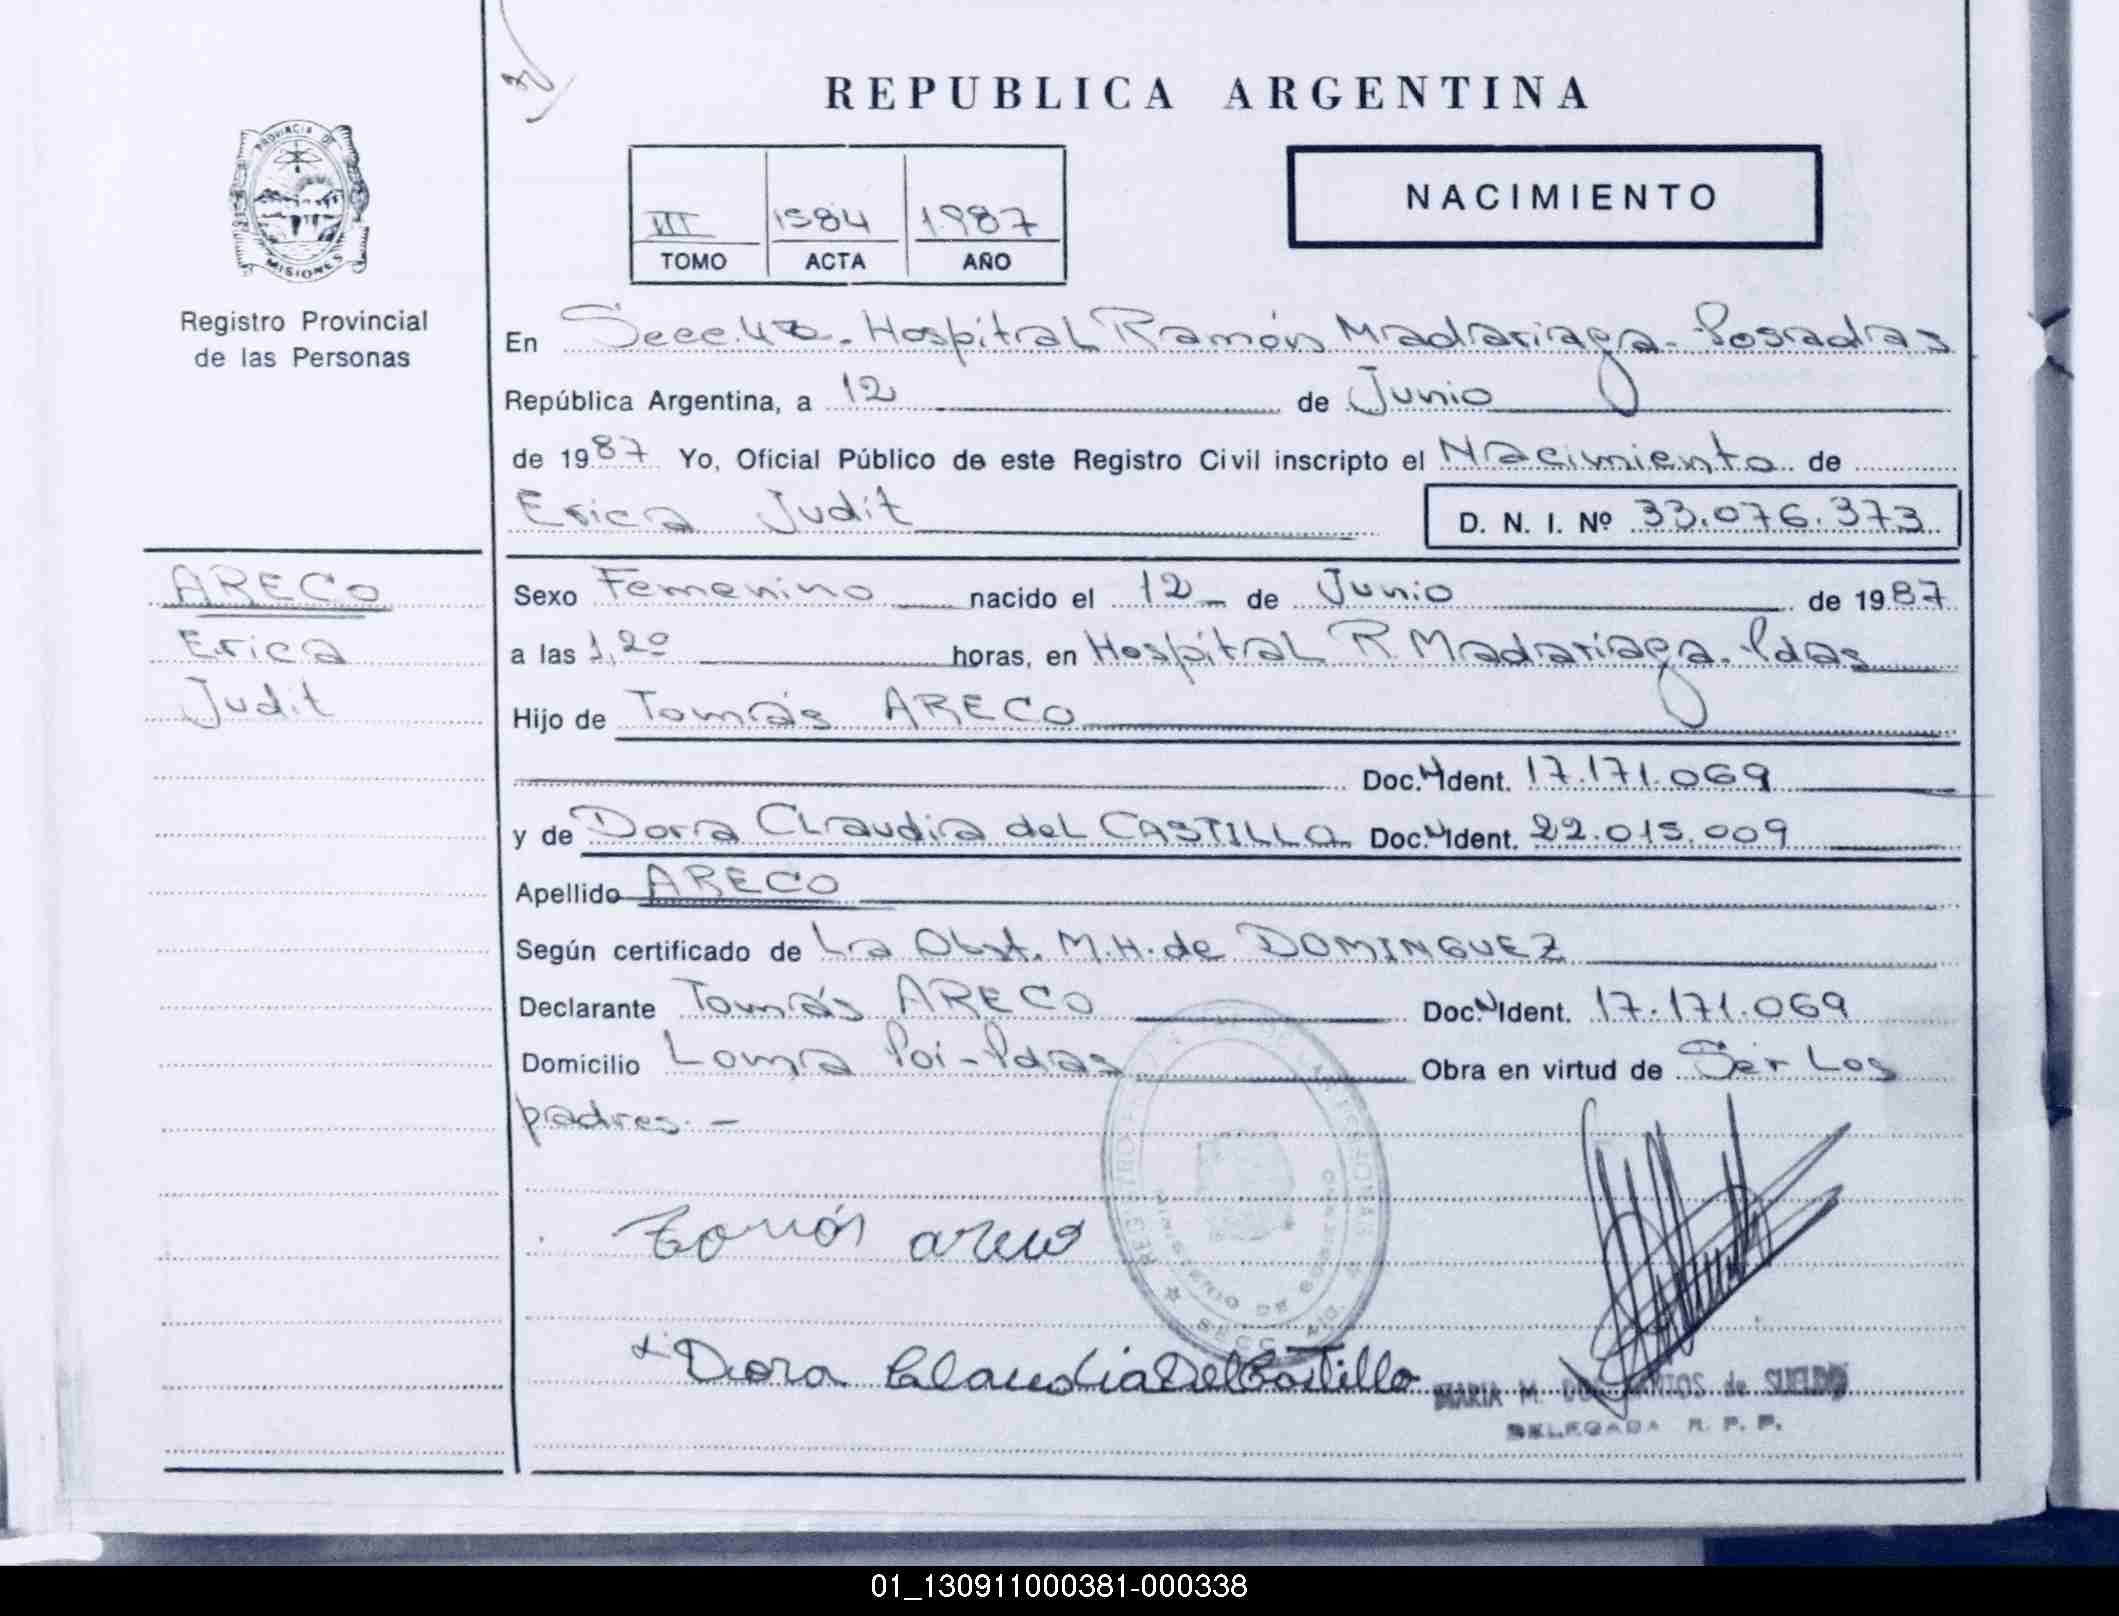 REPUBLICA ARGENTINA
PROVINCIA DE MISIONES
Registro Provincial
de las Personas
III 1584 1987
TOMO ACTA AÑO
NACIMIENTO
En Secc. 4ta. Hospital Ramón Madariaga - Posadas
República Argentina, a 12 de Junio
de 1987 Yo, Oficial Público de este Registro Civil inscripto el Nacimiento de
Erica Judit
D. N. I. Nº 33.076.373
ARECO
Erica
Judit
Sexo Femenino nacido el 12 de Junio de 1987
a las 1,20 horas, en Hospital R. Madariaga. Pdas
Hijo de Tomás ARECO
Doc. N Ident. 17.171.069
y de Dora Claudia del CASTILLO Doc. N Ident. 22.015.009
Apellido ARECO
Según certificado de La Obst. M.H. de DOMINGUEZ
Declarante Tomás ARECO Doc. N Ident. 17.171.069
Domicilio Loma Poi - Pdas Obra en virtud de Ser Los
padres. -
Tomás Areco
Dora Claudia Del Castillo
MARIA M. DOS SANTOS de SUELDO
DELEGADA R. P. P.
01_130911000381-000338